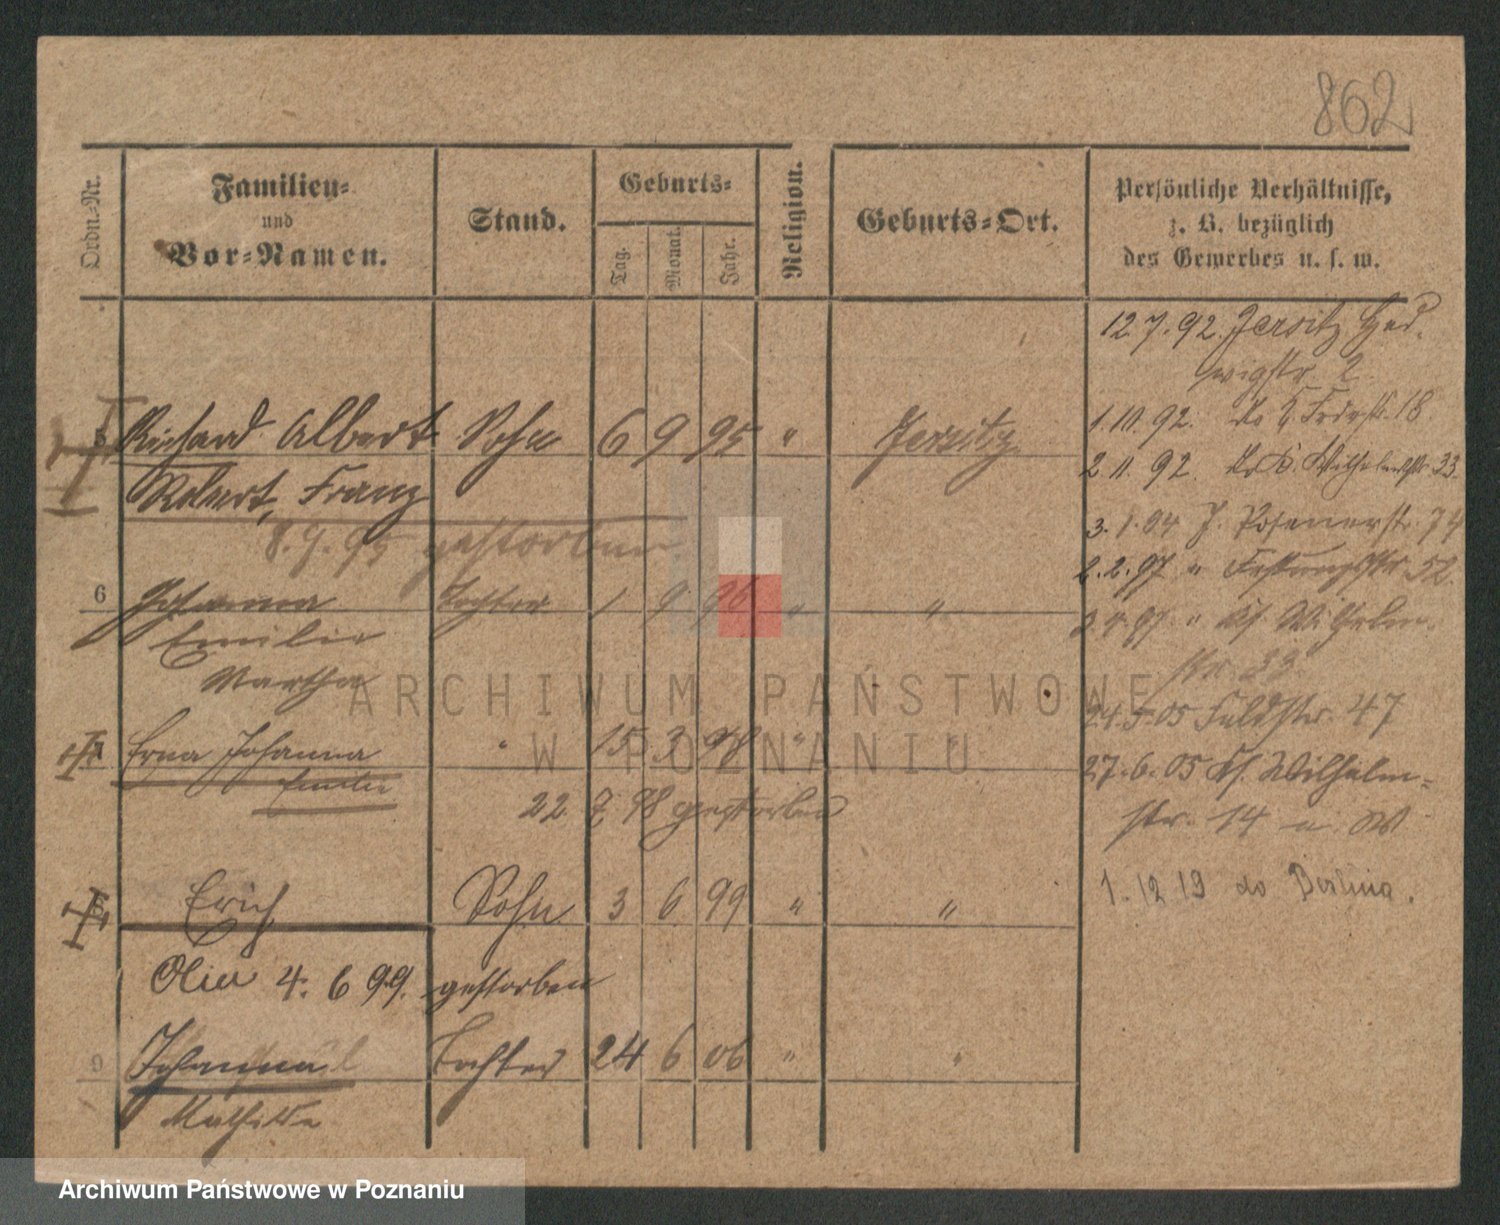 862
Ordn.-Nr.
Familien-
und
Vor-Namen.
Stand.
Geburts-
Tag.
Monat.
Jahr.
Religion.
Geburts-Ort.
Persönliche Verhältnisse,
z. B. bezüglich
des Gewerbes u. s. w.
5 Richard Albert Sohn 6 9 95 " Jersitz
Robert, Franz
8.9.95 gestorben
6 Johanna Tochter 1 9 96 " "
Emilie
Martha
7 Erna Johanna " 15 3 98 " "
Emilie
22 7 98 gestorben
8 Erich Sohn 3 6 99 " "
4. 6 99. gestorben
9 Johanna Tochter 24 6 06 " "
Mathilde
12.7.92. Jersitz Hed-
wigstr. 2
1.10.92.
2.11.92. Wilhelmstr. 33
3.1.94 J. Posenerstr. 74
2.2.97 " Festungsstr. 52.
97 " Wilhelm-
str. 33
24.5.05 Feldstr. 47
27.6.05 Ks. Wilhelm-
str. 14 n. W
1.12 19 do Berlina.
ARCHIWUM PAŃSTWOWE
W POZNANIU
Archiwum Państwowe w Poznaniu